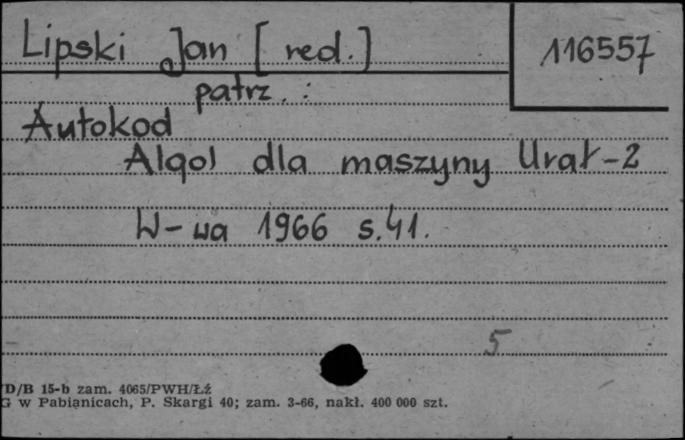 Lipski Jan [red.]
116557
patrz. :
Autokod
Algol dla maszyny Urał-2
W-wa 1966 s.41.
5
D/B 15-b zam. 4065/PWH/Łź
G w Pabianicach, P. Skargi 40; zam. 3-66, nakł. 400 000 szt.